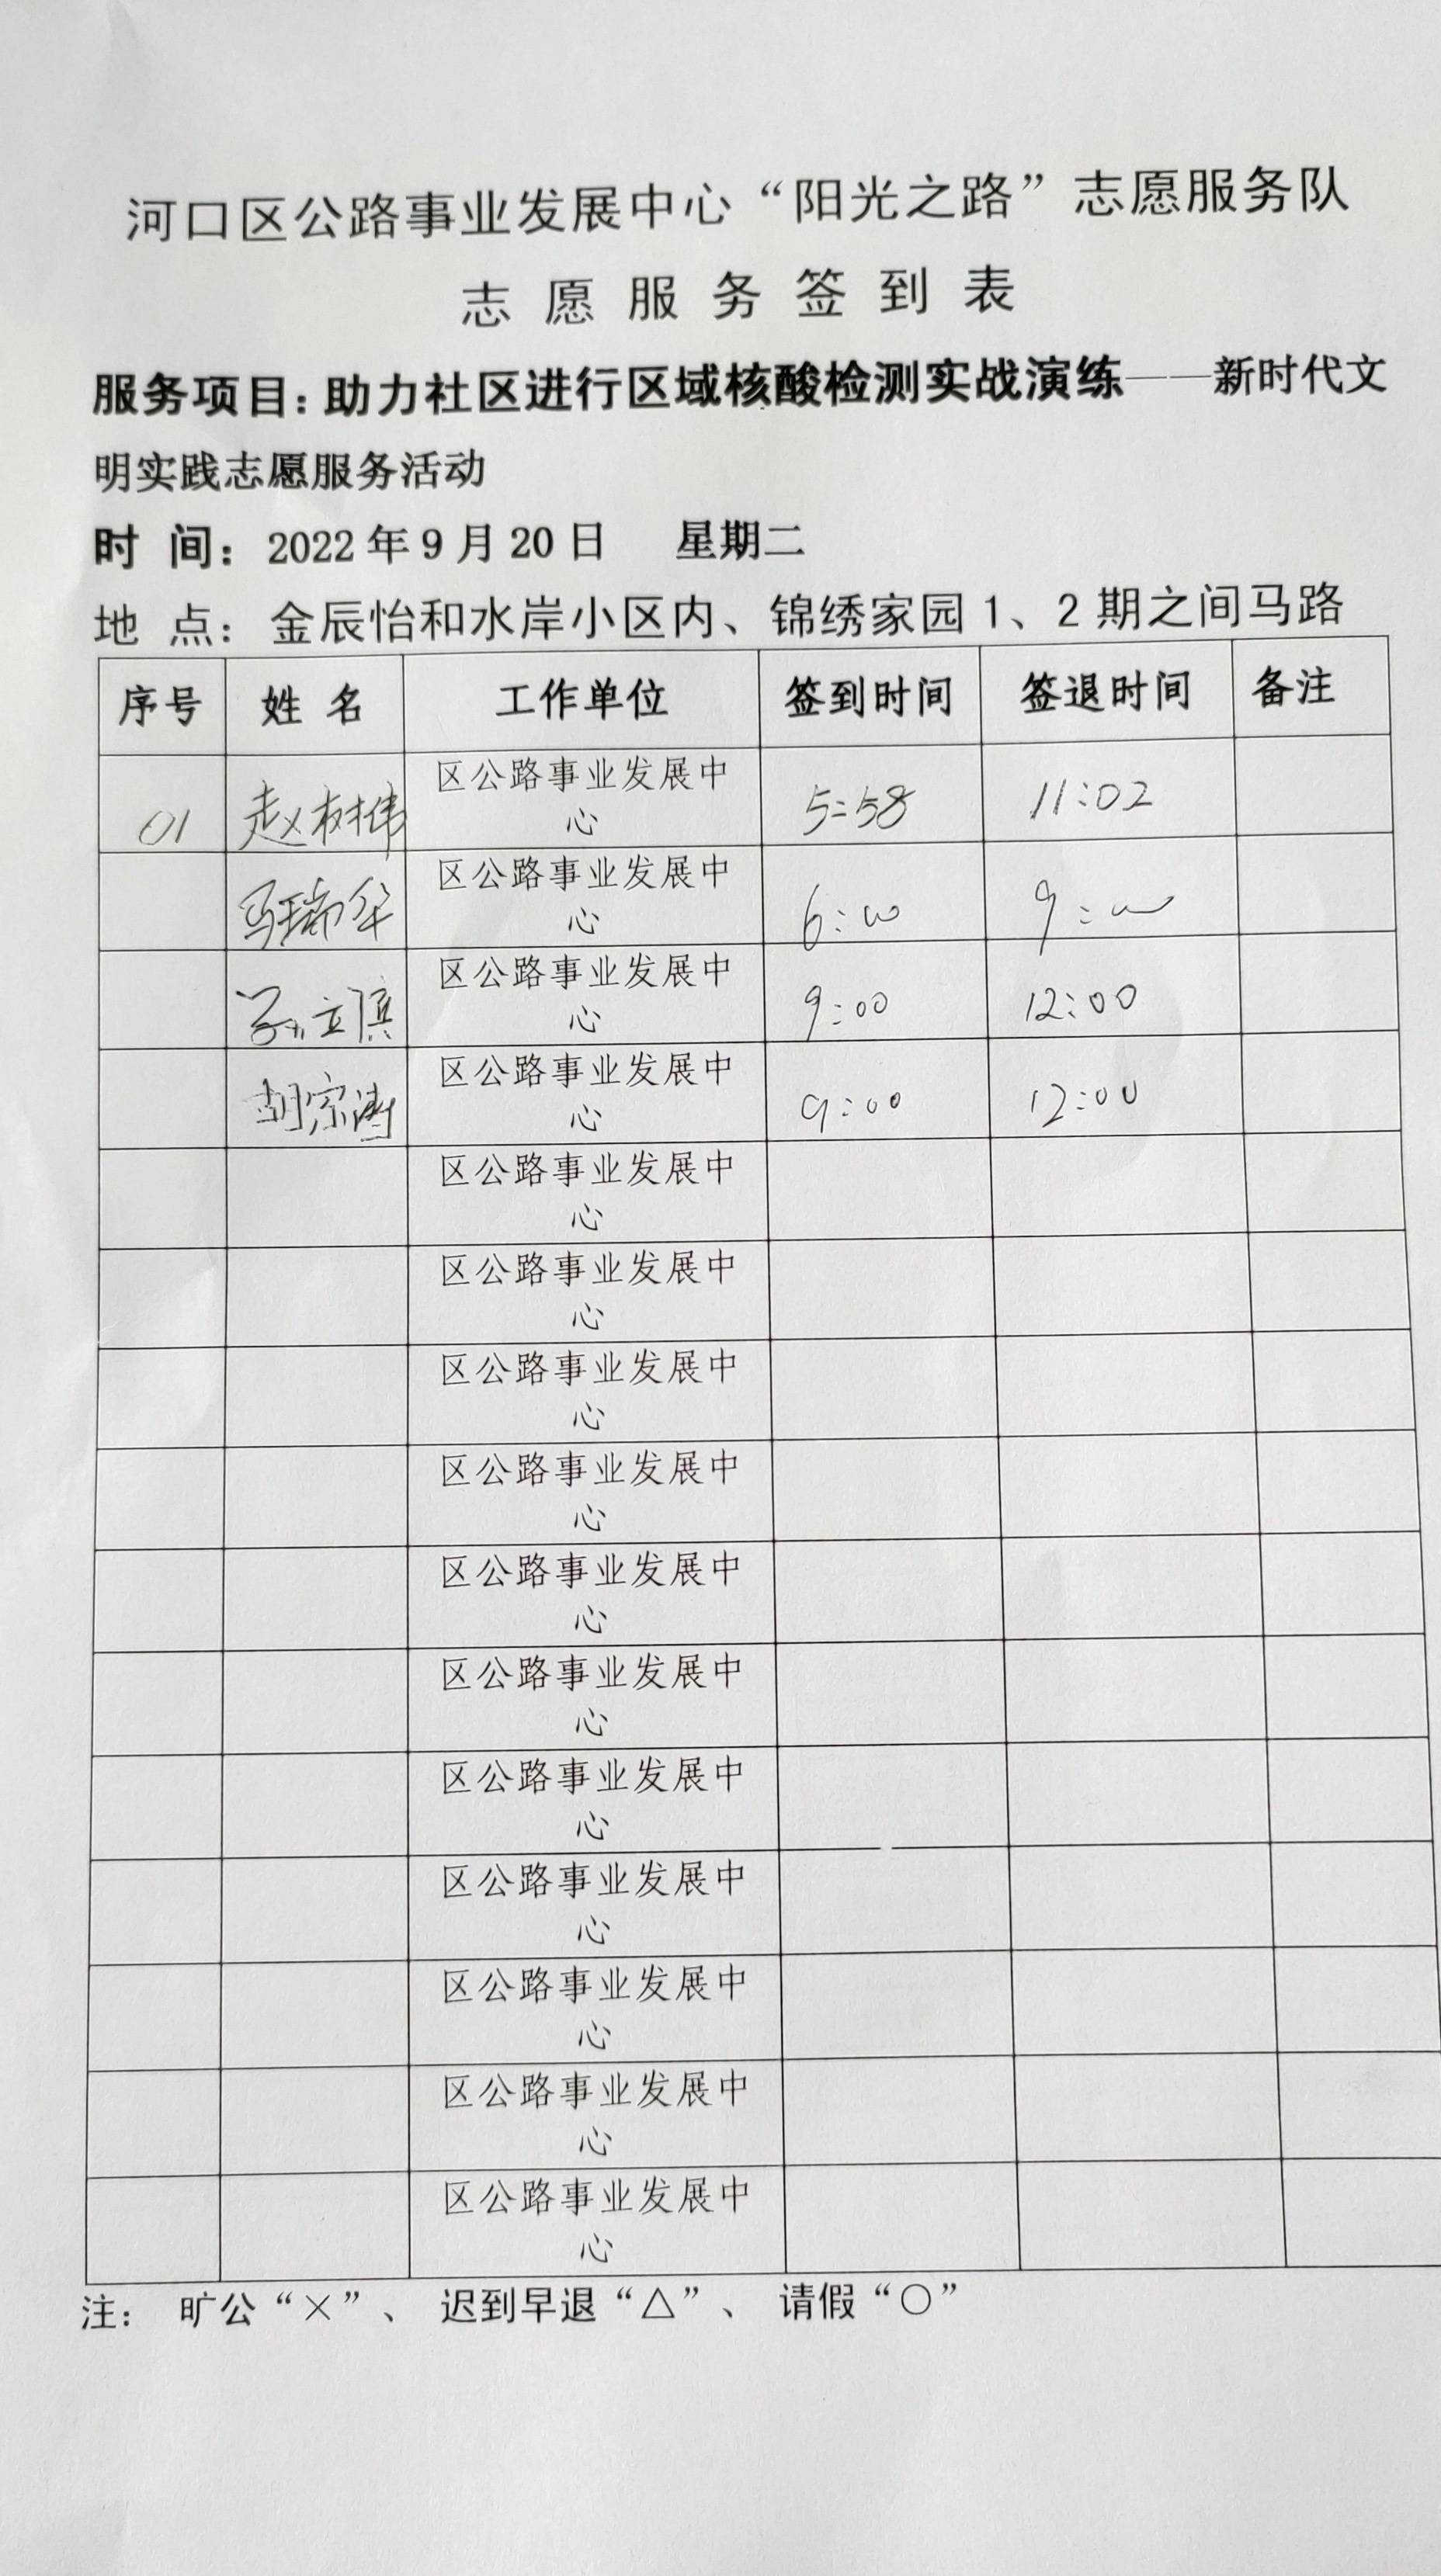 河口区公路事业发展中心“阳光之路”志愿服务队
志愿服务签到表
服务项目：助力社区进行区域核酸检测实战演练——新时代文
明实践志愿服务活动
时 间：2022年9月20日 星期二
地 点：金辰怡和水岸小区内、锦绣家园1、2期之间马路
序号 姓名 工作单位 签到时间 签退时间 备注
区公路事业发展中
01 赵树伟 心 5:58 11:02
区公路事业发展中
马瑞华 心 6:00 9:00
区公路事业发展中
孙立 心 9:00 12:00
区公路事业发展中
胡宗涛 心 9:00 12:00
区公路事业发展中
心
区公路事业发展中
心
区公路事业发展中
心
区公路事业发展中
心
区公路事业发展中
心
区公路事业发展中
心
区公路事业发展中
心
区公路事业发展中
心
区公路事业发展中
心
区公路事业发展中
心
区公路事业发展中
心
注： 旷公“×”、 迟到早退“△”、 请假“○”